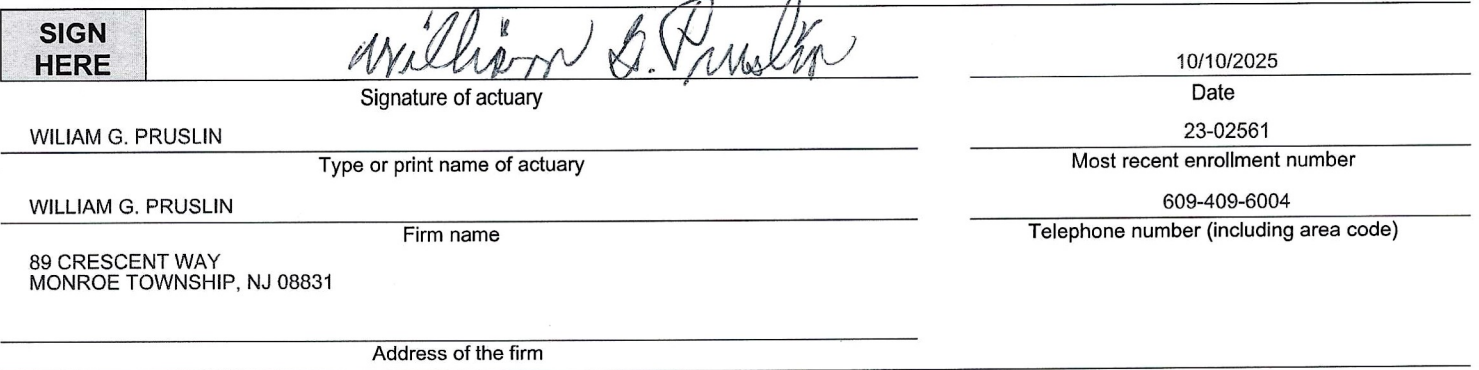 SIGN
HERE
William G. Pruslin
Signature of actuary
10/10/2025
Date
WILIAM G. PRUSLIN
Type or print name of actuary
23-02561
Most recent enrollment number
WILLIAM G. PRUSLIN
Firm name
609-409-6004
Telephone number (including area code)
89 CRESCENT WAY
MONROE TOWNSHIP, NJ 08831
Address of the firm